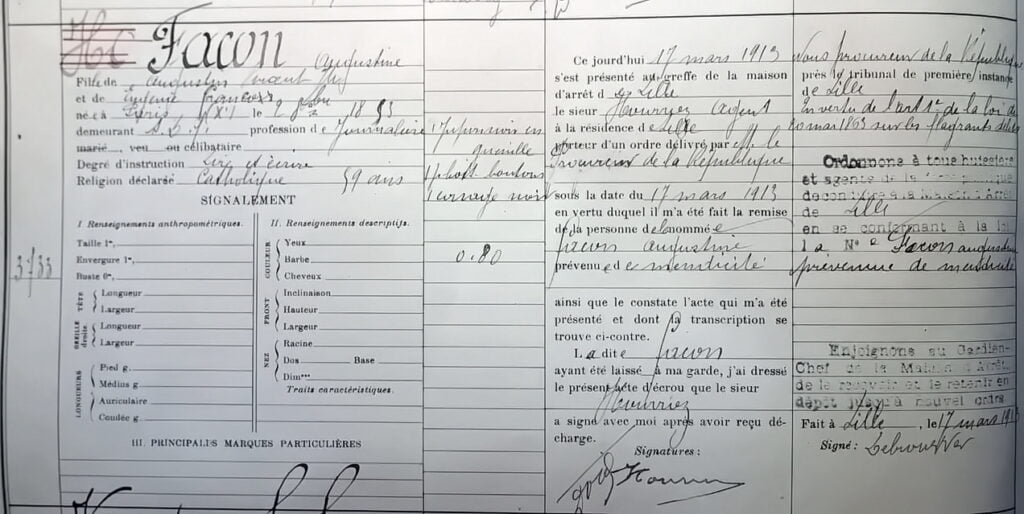 HC Facon Augustine
Fille de Augustin
et de Eugénie François
né e à Paris le 18
demeurant S. D. F. profession de Journalière
marié, veu ou célibataire
Degré d'instruction Lire et écrire
Religion déclarée Catholique 59 ans
SIGNALEMENT
I. Renseignements anthropométriques.
Taille 1m,
Envergure 1m,
Buste 0m,
TÊTE
Longueur
Largeur
OREILLE droite
Longueur
Largeur
LONGUEURS
Pied g.
Médius g.
Auriculaire
Coudée g.
II. Renseignements descriptifs.
COULEUR
Yeux
Barbe
Cheveux
FRONT
Inclinaison
Hauteur
Largeur
NEZ
Racine
Dos Base
Dimon
Traits caractéristiques.
III. PRINCIPALES MARQUES PARTICULIÈRES
1 jupon noir en
guenille
1 corsage noir
0.80
Ce jourd'hui 17 mars 1913
s'est présenté au greffe de la maison
d'arrêt de Lille
le sieur Hourriez agent
à la résidence de Lille
porteur d'un ordre délivré par le
Procureur de la République
sous la date du 17 mars 1913
en vertu duquel il m'a été fait la remise
de la personne de nommé e
Facon Augustine
prévenu e de mendicité
ainsi que le constate l'acte qui m'a été
présenté et dont la transcription se
trouve ci-contre.
La dite Facon
ayant été laissé e à ma garde, j'ai dressé
le présent acte d'écrou que le sieur
Hourriez
a signé avec moi après avoir reçu dé-
charge.
Signatures:
Nous procureur de la République
près le tribunal de première instance
de Lille
En vertu de l'art 1er de la loi du
20 mai 1863 sur les flagrants délits
Ordonnons à tous huissiers
et agents de la force publique
de conduire à la Maison d'Arrêt
de Lille
en se conformant à la loi
la Née Facon Augustine
prévenue de mendicité
Enjoignons au Gardien-
Chef de la Maison d'Arrêt
de le recevoir et le retenir en
dépôt jusqu'à nouvel ordre
Fait à Lille, le 17 mars 1913
Signé: